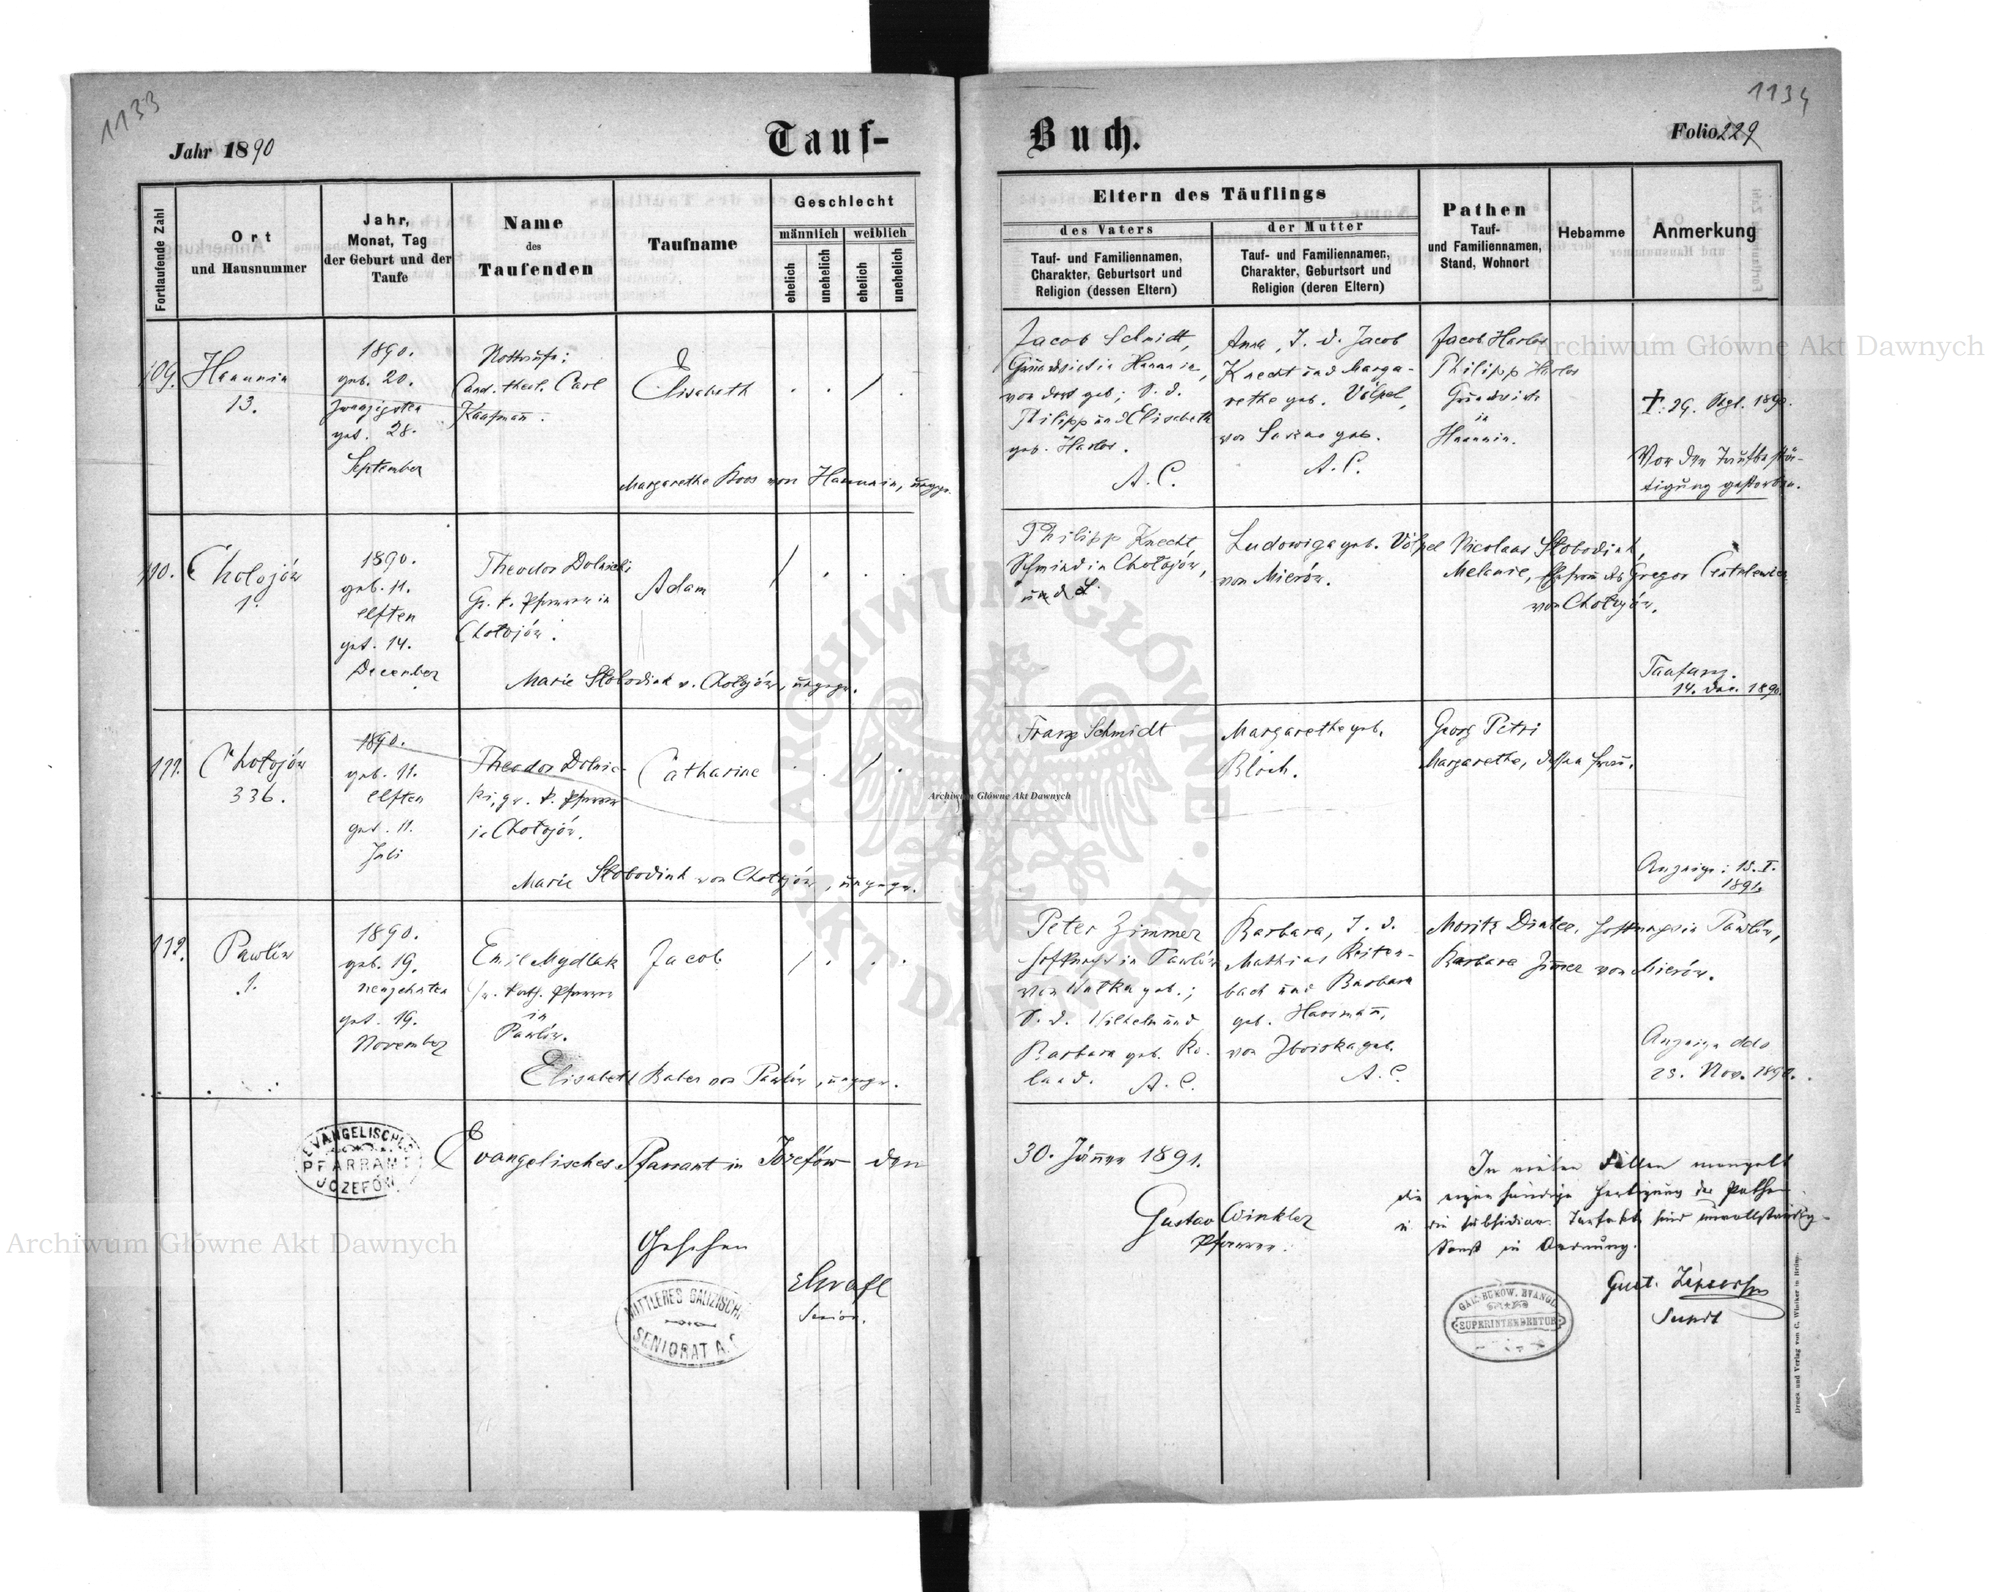 1133
1134
Jahr 1890
Tauf-
Buch.
Folio 229
Fortlaufende Zahl
Ort
und Hausnummer
Jahr,
Monat, Tag
der Geburt und der
Taufe
Name
des
Taufenden
Taufname
Geschlecht
männlich
weiblich
ehelich
unehelich
ehelich
unehelich
Eltern des Täuflings
des Vaters
Tauf- und Familiennamen,
Charakter, Geburtsort und
Religion (dessen Eltern)
der Mutter
Tauf- und Familiennamen,
Charakter, Geburtsort und
Religion (deren Eltern)
Pathen
Tauf-
und Familiennamen,
Stand, Wohnort
Hebamme
Anmerkung
109.
Hanunin
13.
1890.
geb. 20.
zwanzigsten
get. 28.
September
Nottaufe:
Cand. theol. Carl
Kaufmann.
Elisabeth
Margarethe Roos von Hanunin, ungepr.
Jacob Schmidt,
Grundwirt in Hanunin,
von dort geb; S. d.
Philipp und Elisabeth
geb. Harlos.
A. C.
Anna, T. d. Jacob
Knecht und Marga-
rethe geb. Völpel,
von Sapieha geb.
A. C.
Jacob Harlos
Philipp Harlos
Grundwirte
in
Hanunin.
†: 29. Spt. 1890.
Vor der Taufbestä-
tigung gestorben.
110.
Chołojów
1.
1890.
geb. 11.
elften
get. 14.
December
Theodor Dolnicki
Gr. k. Pfarrer in
Chołojów.
Adam
Marie Słobodiak v. Chołojów, ungepr.
Philipp Knecht
Schmied in Chołojów,
Ludowiga geb. Völpel
von Mierów.
Nicolaus Słobodiak,
Melanie, Ehefrau des Gregor
von Chołojów.
Taufanz.
14. Dec. 1890.
111.
Chołojów
336.
1890.
geb. 11.
elften
get. 11.
Juli
Theodor Dolnic-
ki, gr. k. Pfarrer
in Chołojów.
Catharine
Marie Słobodiak von Chołojów, ungepr.
Franz Schmidt
Margarethe geb.
Bloch.
Georg Petri
Margarethe, dessen Frau.
Anzeige: 15. I.
1891.
112.
Pawłów
1.
1890.
geb. 19.
neunzehnten
get. 19.
November
Emil Mydlak
gr. kath. Pfarrer
in
Pawłów.
Jacob
Elisabeth Baber von Pawłów, ungepr.
Peter Zimmer
Hofknecht in Pawłów
von Wulka geb.;
S. d. Wilhelm und
Barbara geb. Ro-
land. A. C.
Barbara, T. d.
Mathias Reiten-
bach und Barbara
geb. Hausmann,
von Zboiska geb.
A. C.
Moritz Dialer, in Pawłów,
Barbara Zimmer von Mierów.
Anzeige ddo
23. Nov. 1890.
EVANGELISCHES
PFARRAMT
JÓZEFÓW.
Evangelisches Pfarramt in Józefów den
30. Jänner 1891.
Gustav Winkler
Pfarrer.
Gesehen
Senior.
MITTLERES GALIZISCHES
SENIORAT A. C.
In vielen Fällen mangelt
die eigenhändige Fertigung der Pathen
u die subsidiar. Taufakte sind unvollständig-
Sonst in Ordnung.
Supdt
GAL.-BUKOW. EVANGL.
SUPERINTENDENTUR
Druck und Verlag von C. Winiker in Brünn.
Archiwum Główne Akt Dawnych
Archiwum Główne Akt Dawnych
Archiwum Główne Akt Dawnych
ARCHIWUM GŁÓWNE AKT DAWNYCH